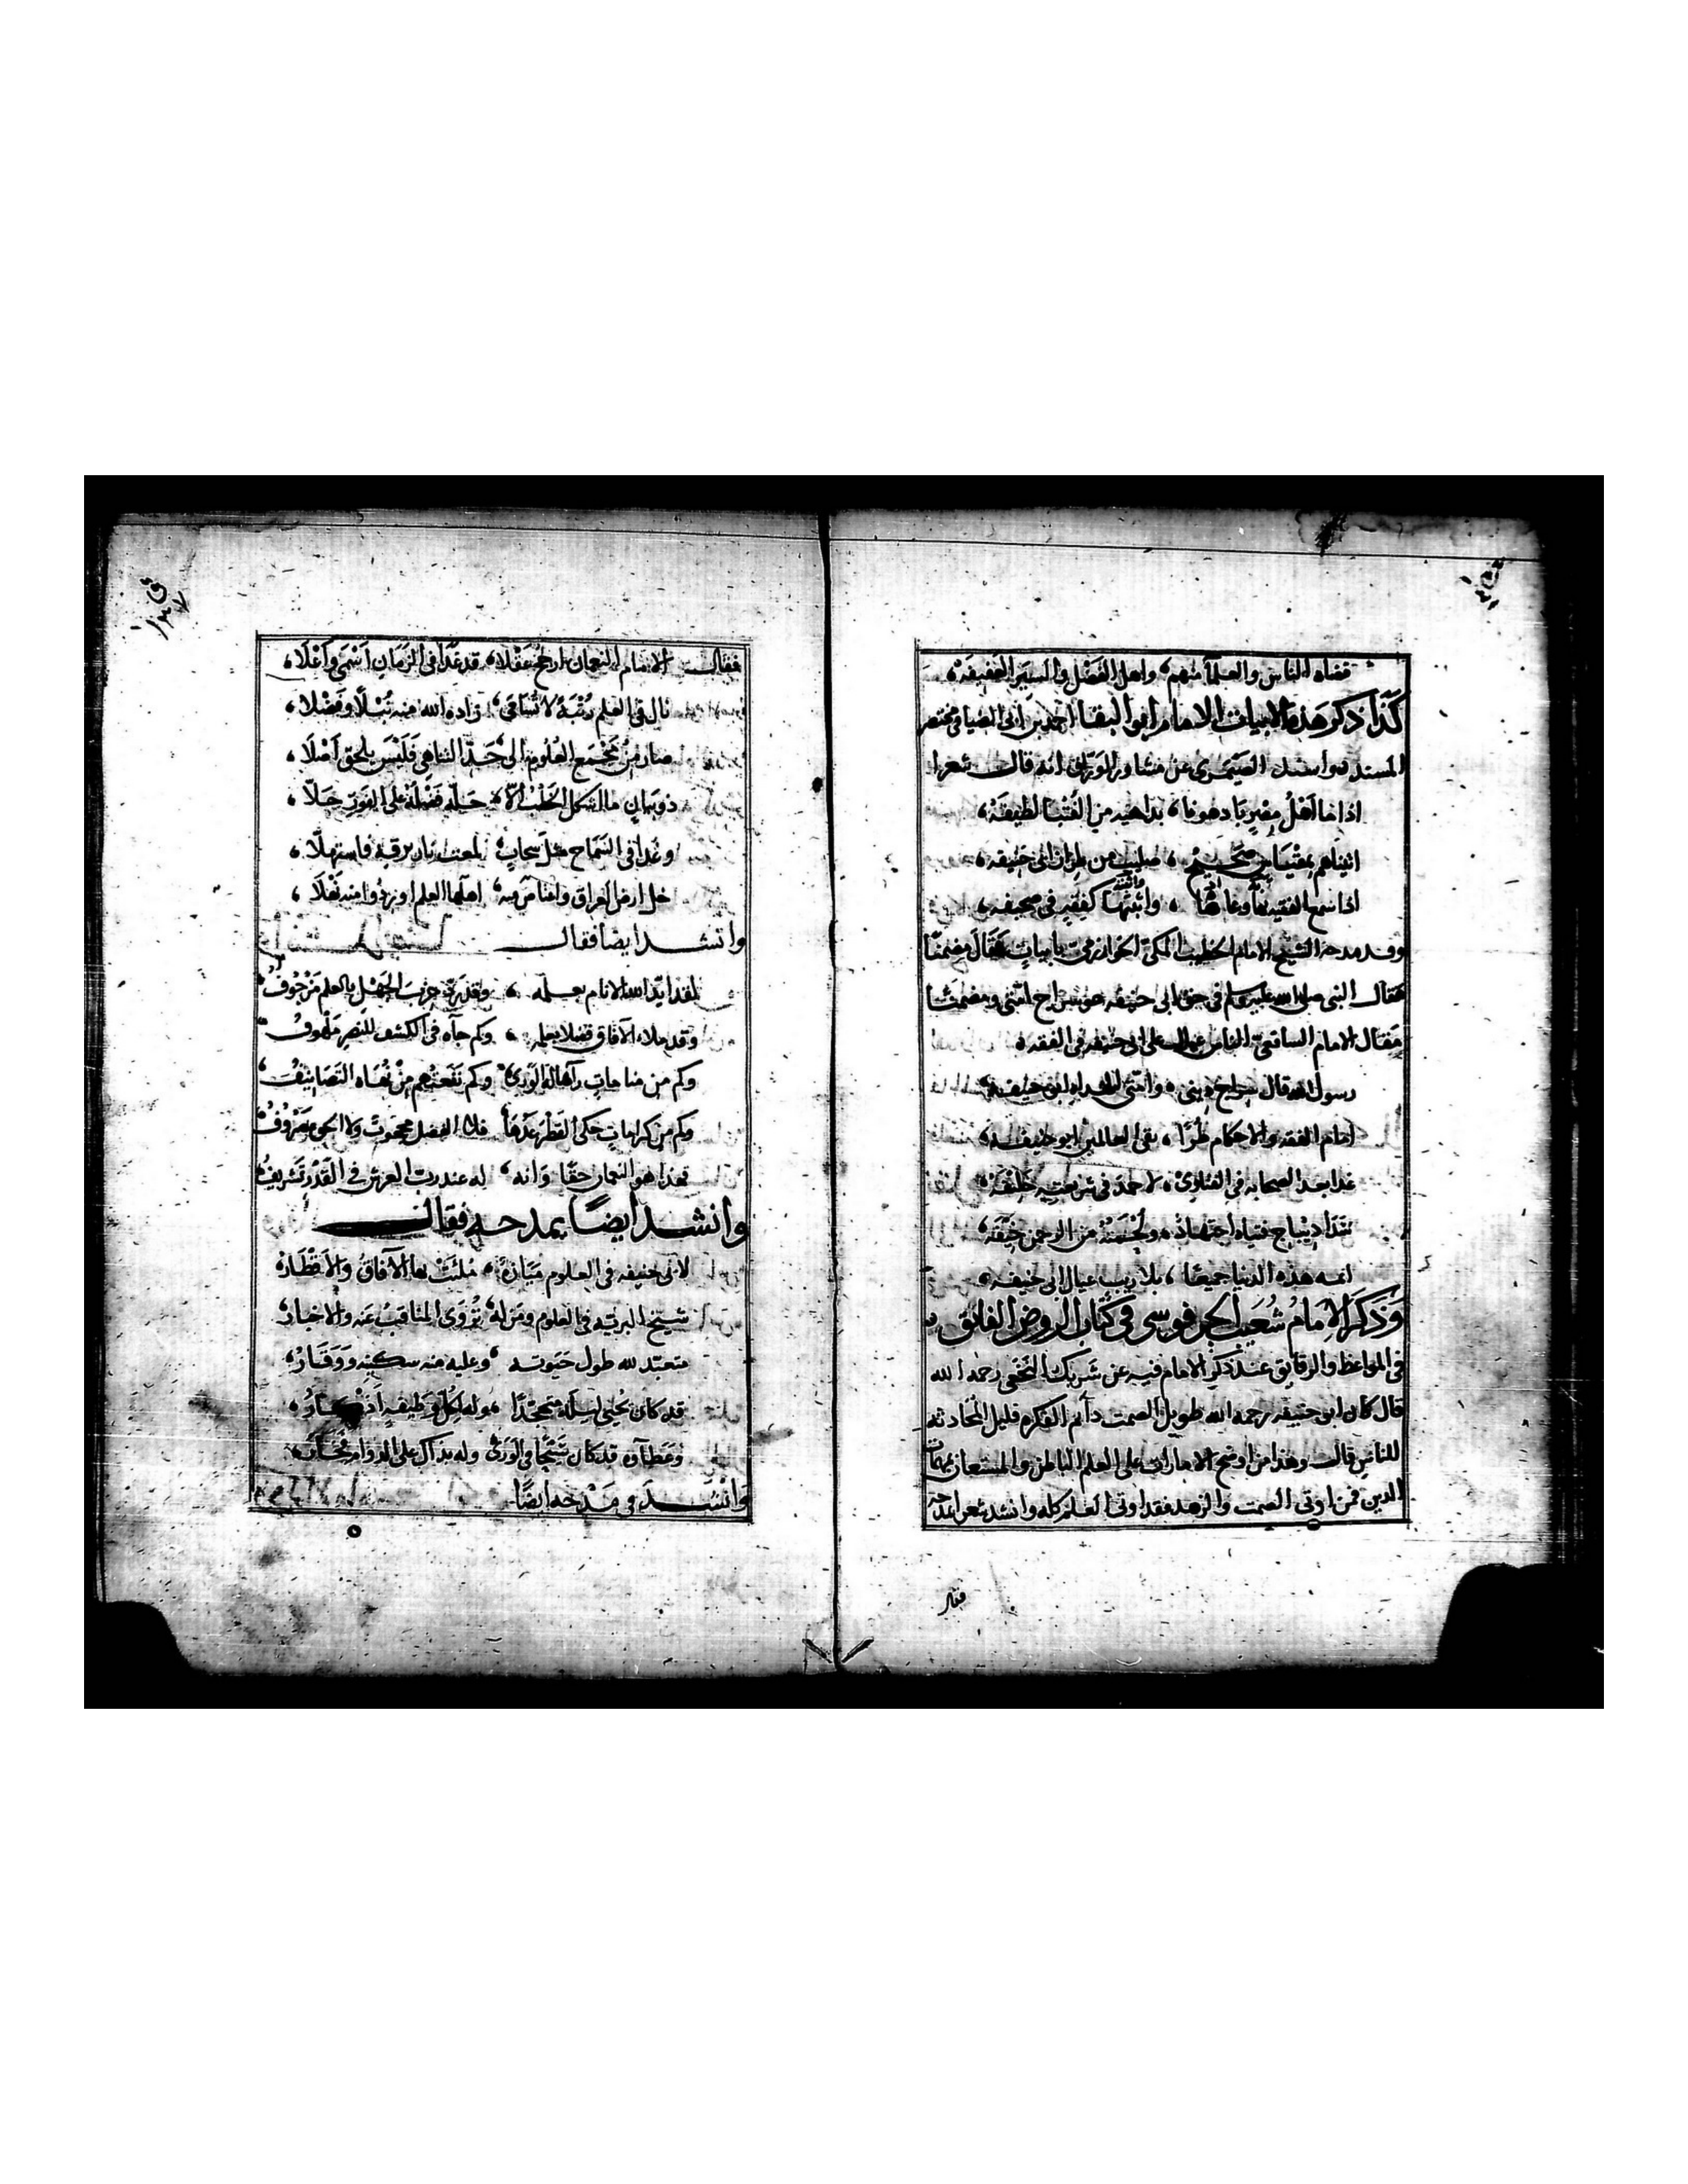 قضاة الناس والعلماء منهم، واهل الفضل والسير العفيفه،
كذا ذكر هذه الابيات الامام ابو البقا احمد بن ابى الضيا فى مختصر
المسند واسند الصيمرى عن مساور الوراق انه قال شعرا
اذا ما اهل مصر بادهونا، بداهيه من الفتيا لطيفة،
اتيناهم بمقياس صحيح، صليب من طراز ابى حنيفه،
اذا سمع الفقيه بها وعاها، واثبتها كفقه فى صحيفه،
وقد مدحه الشيخ الامام الخطيب المكى الخوارزمى بابيات فقال مضمنا
مقال النبى صلى الله عليه وسلم فى حق ابى حنيفه هو سراج امتى ومضمنا
مقال الامام الشافعى الناس عيال على ابى حنيفه فى الفقه،
رسول الله قال سراج دينى، وامتى الهداه ابو حنيفه،
امام الفقه والاحكام طرًا، بقى العالمين ابو حنيفه،
غدا بعد الصحابه فى الفتاوى، لاحمد فى شريعته خليفة،
سدا ديباج فتياه اجتهاد، ولحمته من الرحمن خيفة،
ائمه هذه الدنيا جميعًا، بلا ريب عيال ابى حنيفه،
وذكر الامام شعيب الحرفوسى فى كتاب الروض الفائق
فى المواعظ والرقايق عند ذكر الامام فيه عن شريك النخعى رحمه الله
قال كان ابو حنيفه رحمه الله طويل الصمت دائم الفكر قليل المحادثه
للناس قالت وهذا من اوضح الامارات على العلم الباطن والمستعان بمهمات
الدين فمن اوتى الصمت والزهد فقد اوتى العلم كله وانشد شعرا بمدحه
فقال
فقالت الامام النعمان ارجح عقلا، قد غدا فى الزمان اسمى واعلا،
نال فى العلم رتبة لا تسامى، زاده الله منه نبلا وفضلا،
صار من مجمع العلوم الى حد التناهى فليس يلحق اصلا،
ذو بيان ما اشكل الخطب الا، حله فضله على الفور حلا،
وغدا فى السماح مثل سحاب، لمعت نار برقه فاستهلا،
خل ارض العراق واقتاس منه، اهلها العلم اورثوا منه نقلا،
وانشد ايضا فقال
لقد ايد الله الانام بعلمه، وقد رد حزب الجهل بالعلم مزحوف
وقد ملاء الآفاق فضلا بعلمه، وكم جآه فى الكشف للنصر ملهوف
وكم من منامات رآها له الورى، وكم نفعتهم من تقاه التصانيف،
وكم من كرامات حكى القطر عدها، فلا الفضل محجوب ولا الجود مصروف
فهذا هو النعمان حقا وانه، له عند رب العرش فى القدر تشريف
وانشد ايضًا بمدحه فقال
لابى حنيفه فى العلوم منازه، ملئت بها الآفاق والاقطار،
شيخ البريه فى العلوم ومن له، تروى المناقب عنه والاخبار،
متعبد لله طول حيوته، وعليه منه سكينه ووقار،
قد كان يحيى ليله متهجدًا، وله لكل وظيفه اذكار،
وعطآه قد كان شيئًا فى الورى وله بذاك على الدوام فخار،
وانشد فى مدحه ايضًا